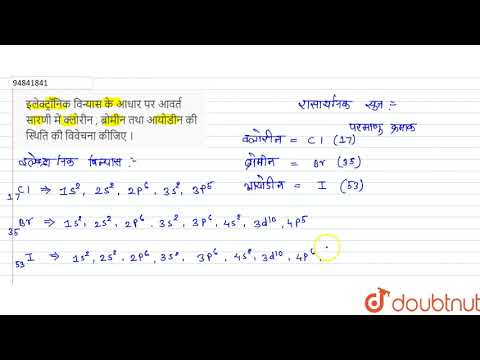 94841841
इलेक्ट्रॉनिक विन्यास के आधार पर आवर्त
सारणी में क्लोरीन , ब्रोमीन तथा आयोडीन की
स्थिति की विवेचना कीजिए ।
रासायनिक सूत्र :-
परमाणु क्रमांक
क्लोरीन = Cl (17)
ब्रोमीन = Br (35)
आयोडीन = I (53)
इलेक्ट्रॉनिक विन्यास :-
17Cl ⇒ 1s², 2s², 2p⁶, 3s², 3p⁵
35Br ⇒ 1s², 2s², 2p⁶, 3s², 3p⁶, 4s², 3d¹⁰, 4p⁵
53I ⇒ 1s², 2s², 2p⁶, 3s², 3p⁶, 4s², 3d¹⁰, 4p⁶,
doubtnut